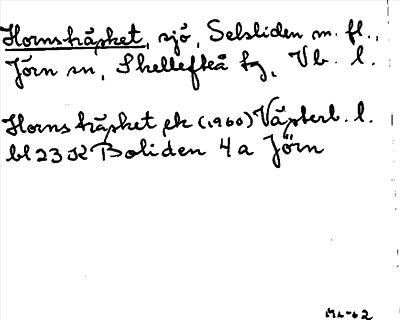 Hornsträsket, sjö, Selsliden m. fl.,
Jörn sn, Skellefteå kg, Vb. l.
Hornsträsket ek (1960) Västerb. l.
bl 23 K Boliden 4 a Jörn